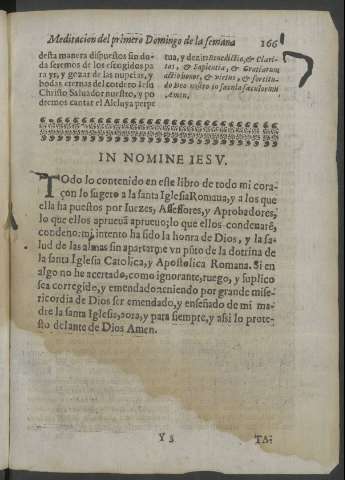 Meditacion del primero Domingo de la semana 166
desta manera dispuestos sin du-
da seremos de los escogidos pa
ra yr, y gozar de las nupcias, y
bodas eternas del cordero Iesu
Christo Saluador nuestro, y po
dremos cantar el Aleluya perpe
tua, y dezir: Benedictio, & Clari-
tas, & Sapientia, & Gratiarum
actio honor, & virtus, & fortitu-
do Deo nostro in sæcula sæculorum
Amen.
IN NOMINE IESV.
TOdo lo contenido en este libro de todo mi cora-
çon lo sugeto a la santa Iglesia Romana, y a los que
ella ha puestos por Iuezes, Assessores, y Aprobadores,
lo que ellos aprueuā aprueuo; lo que ellos condenarē,
condeno: mi intento ha sido la honra de Dios, y la sa-
lud de las almas sin apartarme vn pūto de la dotrina de
la santa Iglesia Catolica, y Apostolica Romana. Si en
algo no he acertado, como ignorante, ruego, y suplico
sea corregido, y emendado: teniendo por grande mise-
ricordia de Dios ser emendado, y enseñado de mi ma-
dre la santa Iglesia, aora, y para siempre, y assi lo prote-
sto delante de Dios Amen.
Y 3 TA-